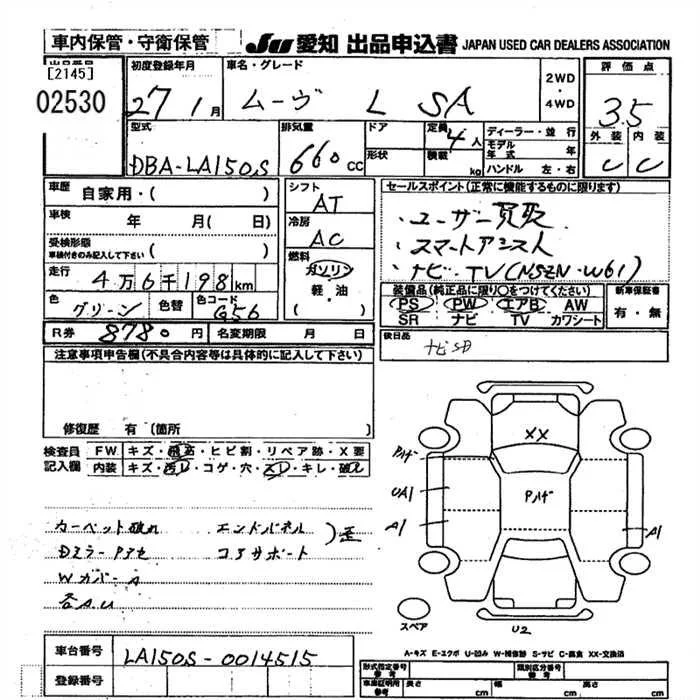 車内保管・守衛保管
JU 愛知 出品申込書 JAPAN USED CAR DEALERS ASSOCIATION
出品番号
[2145]
02530
初度登録年月
27 1月
車名・グレード
ムーヴ L SA
2WD
・
4WD
評価点
3.5
外装 内装
C C
型式
DBA-LA150S
排気量
660cc
ドア
形状
定員 4人
積載 kg
ディーラー・並行
モデル年式 年
ハンドル 左・右
車歴 自家用・( )
車検 年 月( 日)
受検形態
車検付きのみ記入して下さい ( )
走行 4万6千198km
色 グリーン 色替 色コード G56
R券 8780円 名変期限 月 日
シフト
AT
冷房
AC
燃料
ガソリン
軽・油
( )
セールスポイント(正常に機能するものに限ります)
・ユーザー買取
・スマートアシスト
・ナビ・TV(NSZN-W61)
装備品(純正品に限り○をつけてください)
PS PW エアB AW
SR ナビ TV カワシート
新車保証書
有・無
後日品
ナビSD
注意事項申告欄(不具合内容等は具体的に記入して下さい)
修復歴 有(箇所 )
検査員 FW キズ・飛石・ヒビ割・リペア跡・X要
記入欄 内装 キズ・汚レ・コゲ・穴・スレ・キレ・破レ
カーペット破れ エンドパネル
コアサポート
)歪
Wカバー A
各A.U
XX
Pハゲ
Pハゲ
UA1
A1
A1
スペア
U2
A-キズ E-エクボ U-凹み W-補修跡 S-サビ C-腐食 XX-交換済
車台番号 LA150S-0014515
登録番号
型式指定番号 類別区分番号
車庫証明用参考 長さ cm 幅 cm 高さ cm